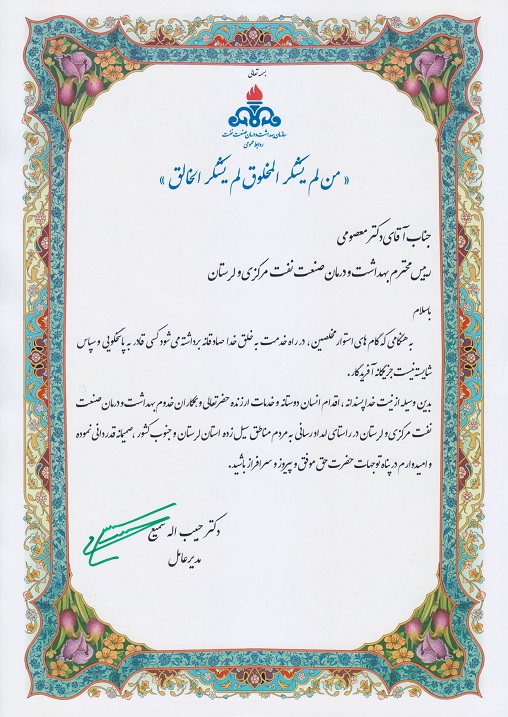 بسمه تعالی
سازمان بهداشت و درمان صنعت نفت
روابط عمومی
« من لم یشکر المخلوق لم یشکر الخالق »
جناب آقای دکتر معصومی
رییس محترم بهداشت و درمان صنعت نفت مرکزی و لرستان
باسلام
به هنگامی که گام های استوار مخلصین ، در راه خدمت به خلق خدا صادقانه برداشته می شود کسی قادر به پاسخگویی و سپاس
شایسته نیست جز یگانه آفریدگار.
بدین وسیله از نیت خداپسندانه ، اقدام انسان دوستانه و خدمات ارزنده حضرتعالی و همکاران خدوم بهداشت و درمان صنعت
نفت مرکزی و لرستان در راستای امداد رسانی به مردم مناطق سیل زده استان لرستان و جنوب کشور ، صمیمانه قدردانی نموده
و امیدوارم در پناه توجهات حضرت حق موفق و پیروز و سرافراز باشید.
دکتر حبیب اله سمیع
مدیرعامل